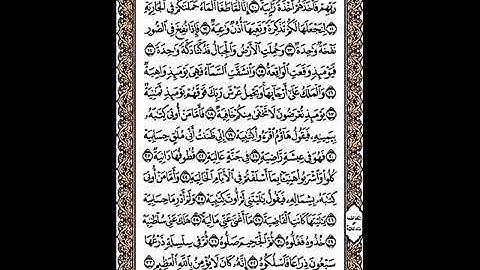 رَبِّهِمْ فَأَخَذَهُمْ أَخْذَةً رَّابِيَةً ١٠ إِنَّا لَمَّا طَغَا ٱلْمَآءُ حَمَلْنَٰكُمْ فِى ٱلْجَارِيَةِ
١١ لِنَجْعَلَهَا لَكُمْ تَذْكِرَةً وَتَعِيَهَآ أُذُنٌ وَٰعِيَةٌ ١٢ فَإِذَا نُفِخَ فِى ٱلصُّورِ
نَفْخَةٌ وَٰحِدَةٌ ١٣ وَحُمِلَتِ ٱلْأَرْضُ وَٱلْجِبَالُ فَدُكَّتَا دَكَّةً وَٰحِدَةً ١٤
فَيَوْمَئِذٍ وَقَعَتِ ٱلْوَاقِعَةُ ١٥ وَٱنشَقَّتِ ٱلسَّمَآءُ فَهِىَ يَوْمَئِذٍ وَاهِيَةٌ
١٦ وَٱلْمَلَكُ عَلَىٰٓ أَرْجَآئِهَا وَيَحْمِلُ عَرْشَ رَبِّكَ فَوْقَهُمْ يَوْمَئِذٍ ثَمَٰنِيَةٌ
١٧ يَوْمَئِذٍ تُعْرَضُونَ لَا تَخْفَىٰ مِنكُمْ خَافِيَةٌ ١٨ فَأَمَّا مَنْ أُوتِىَ كِتَٰبَهُۥ
بِيَمِينِهِۦ فَيَقُولُ هَآؤُمُ ٱقْرَءُوا۟ كِتَٰبِيَهْ ١٩ إِنِّى ظَنَنتُ أَنِّى مُلَٰقٍ حِسَابِيَهْ
٢٠ فَهُوَ فِى عِيشَةٍ رَّاضِيَةٍ ٢١ فِى جَنَّةٍ عَالِيَةٍ ٢٢ قُطُوفُهَا دَانِيَةٌ ٢٣
كُلُوا۟ وَٱشْرَبُوا۟ هَنِيٓـًٔۢا بِمَآ أَسْلَفْتُمْ فِى ٱلْأَيَّامِ ٱلْخَالِيَةِ ٢٤ وَأَمَّا مَنْ أُوتِىَ
كِتَٰبَهُۥ بِشِمَالِهِۦ فَيَقُولُ يَٰلَيْتَنِى لَمْ أُوتَ كِتَٰبِيَهْ ٢٥ وَلَمْ أَدْرِ مَا حِسَابِيَهْ
٢٦ يَٰلَيْتَهَا كَانَتِ ٱلْقَاضِيَةَ ٢٧ مَآ أَغْنَىٰ عَنِّى مَالِيَهْ ٢٨ هَلَكَ عَنِّى سُلْطَٰنِيَهْ
٢٩ خُذُوهُ فَغُلُّوهُ ٣٠ ثُمَّ ٱلْجَحِيمَ صَلُّوهُ ٣١ ثُمَّ فِى سِلْسِلَةٍ ذَرْعُهَا
سَبْعُونَ ذِرَاعًا فَٱسْلُكُوهُ ٣٢ إِنَّهُۥ كَانَ لَا يُؤْمِنُ بِٱللَّهِ ٱلْعَظِيمِ ٣٣